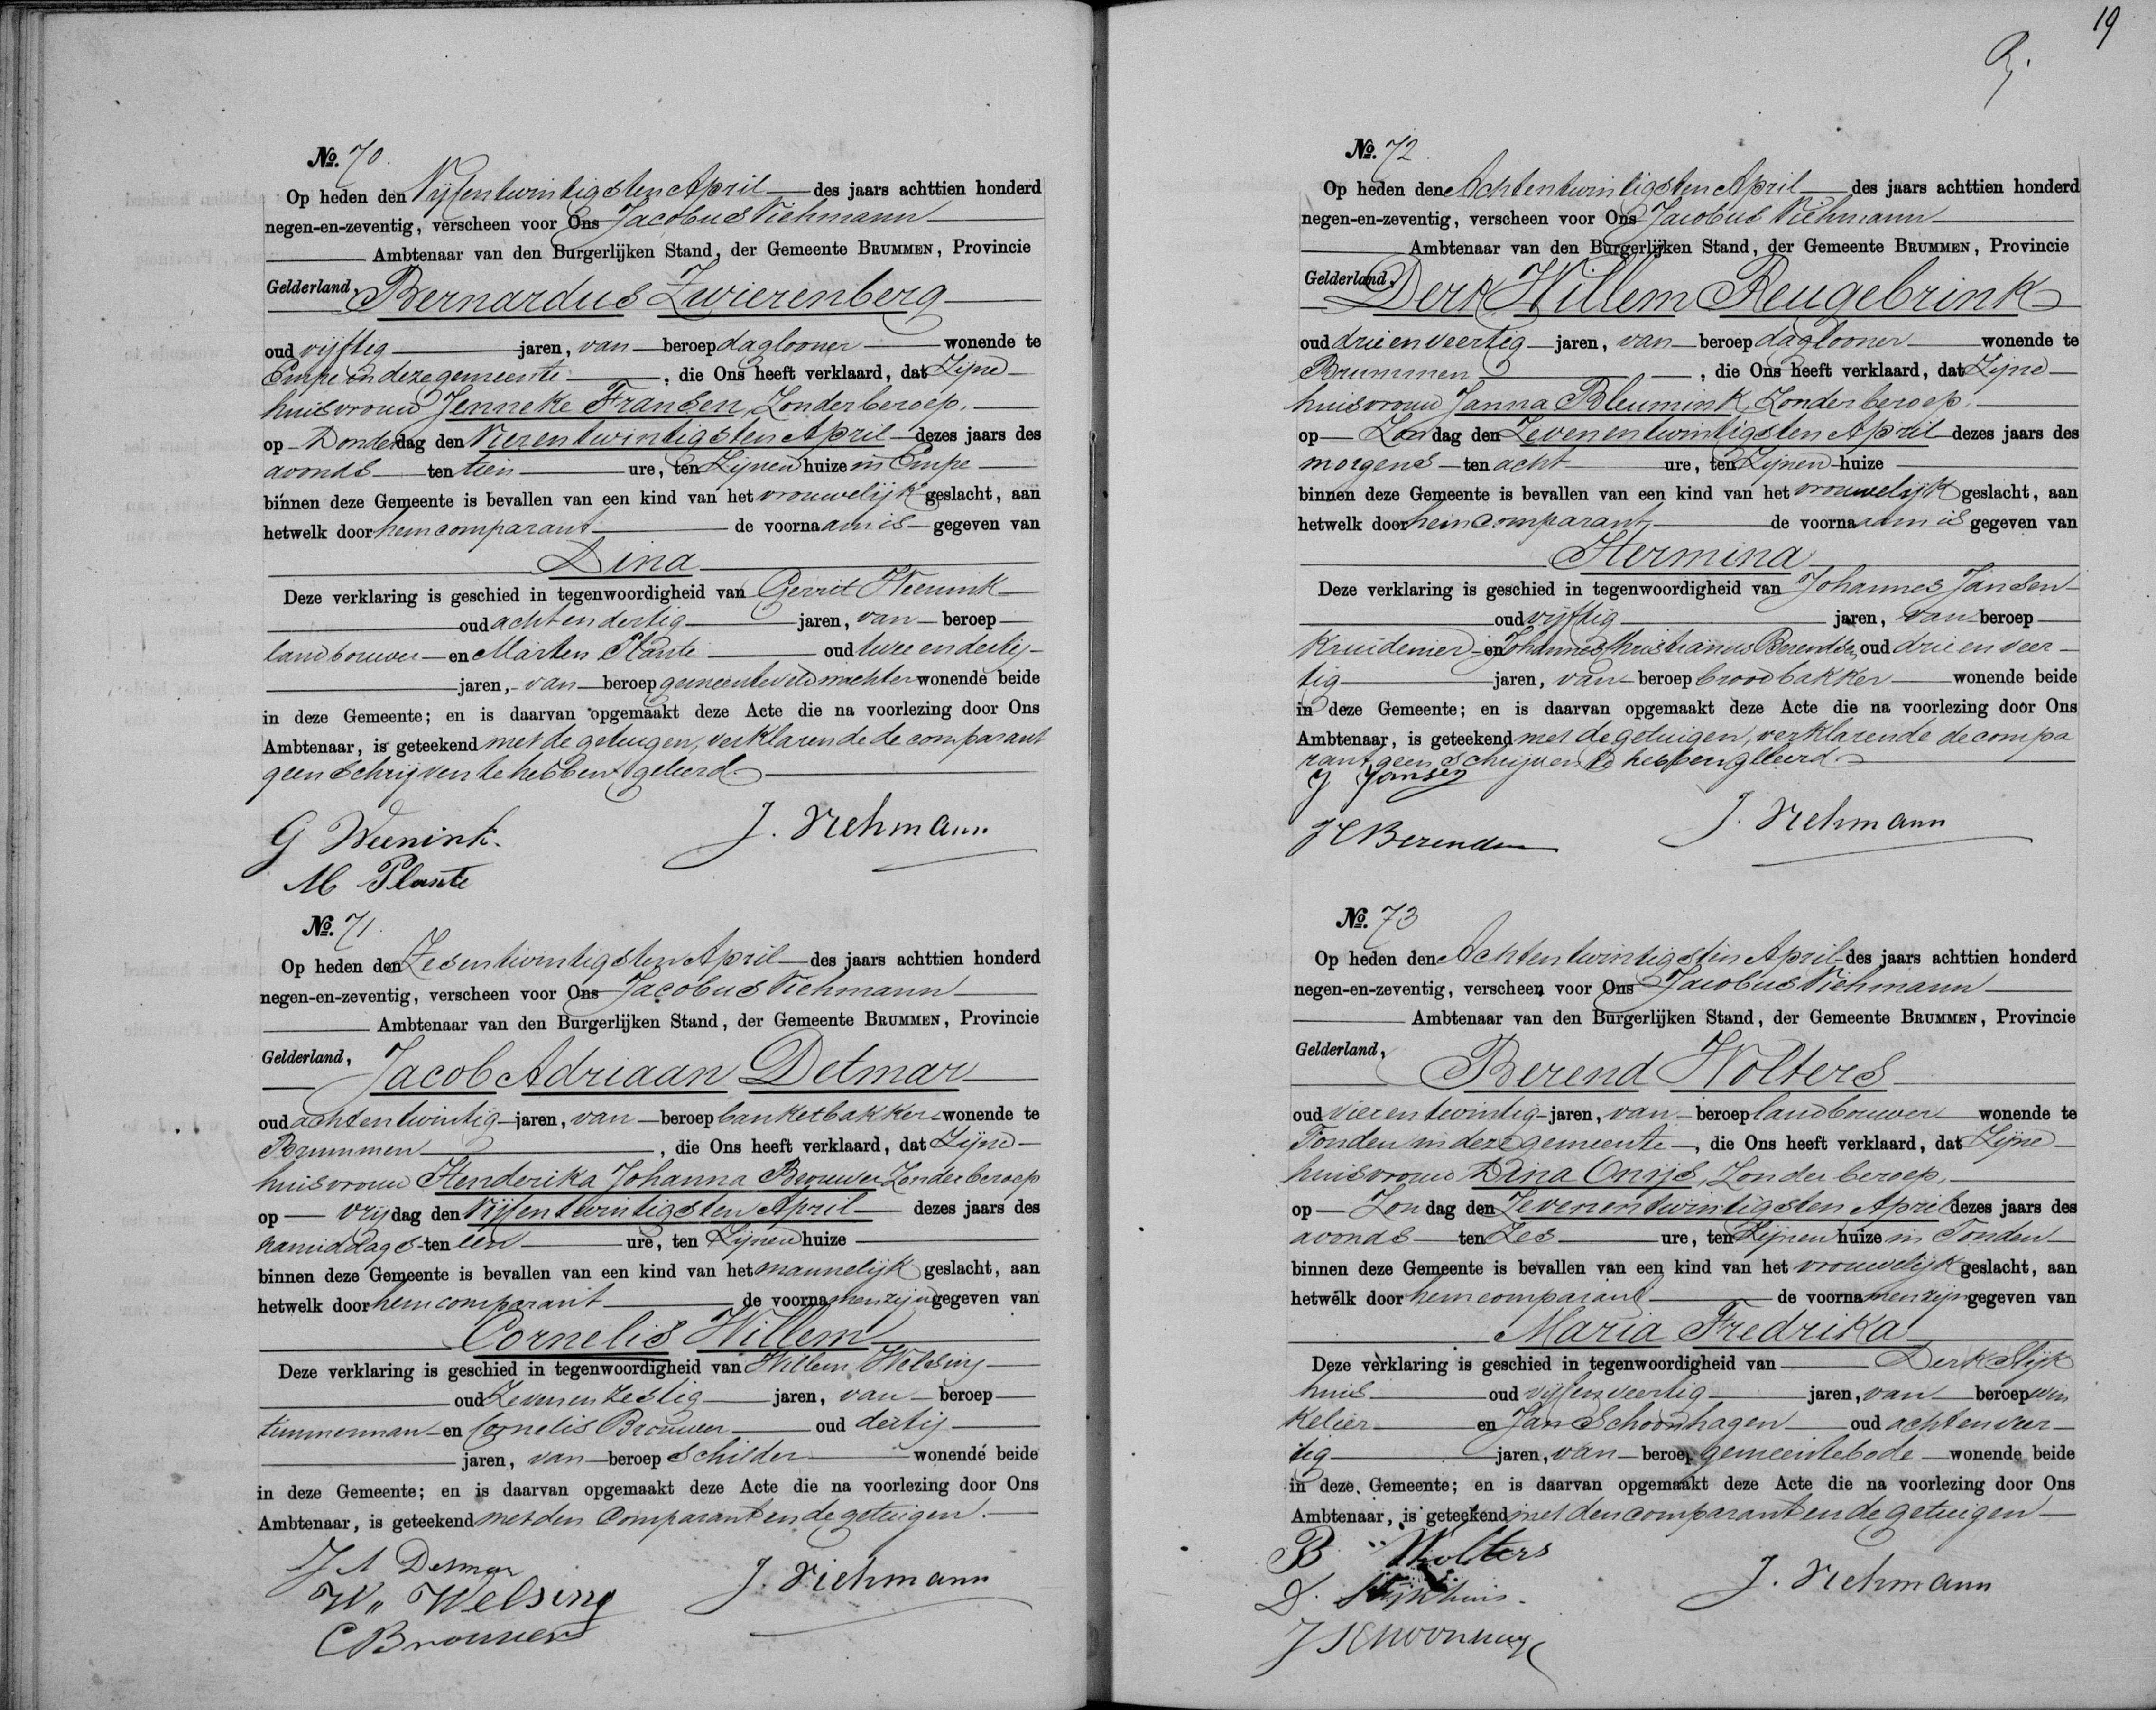 No. 70.
Op heden den Vijfentwintigsten April des jaars achttien honderd
negen-en-zeventig, verscheen voor Ons Jacobus Viehmann
Ambtenaar van den Burgerlijken Stand, der Gemeente BRUMMEN, Provincie
Gelderland, Bernardus Zwierenberg
oud vijftig jaren, van beroep daglooner wonende te
Empe in deze gemeente, die Ons heeft verklaard, dat Zijne
huisvrouw Jenneke Fransen, Zonder beroep.
op Donderdag den Vierentwintigsten April dezes jaars des
avonds ten tien ure, ten Zijnen huize in Empe
binnen deze Gemeente is bevallen van een kind van het vrouwelijk geslacht, aan
hetwelk door hem comparant de voornaam is gegeven van
Dina
Deze verklaring is geschied in tegenwoordigheid van Gerrit Weenink
oud achtendertig jaren, van beroep
landbouwer en Marten Plante oud twee en dertig
jaren, van beroep gemeenteveldwachter wonende beide
in deze Gemeente; en is daarvan opgemaakt deze Acte die na voorlezing door Ons
Ambtenaar, is geteekend met de getuigen, verklarende de comparant
geen Schrijven te hebben geleerd.
G Weenink. J. Viehmann
M Plante
No. 71.
Op heden den Zesentwintigsten April des jaars achttien honderd
negen-en-zeventig, verscheen voor Ons Jacobus Viehmann
Ambtenaar van den Burgerlijken Stand, der Gemeente BRUMMEN, Provincie
Gelderland, Jacob Adriaan Detmar
oud achtentwintig jaren, van beroep banketbakker wonende te
Brummen, die Ons heeft verklaard, dat Zijne
huisvrouw Henderika Johanna Brouwer Zonder beroep
op vrijdag den Vijfentwintigsten April dezes jaars des
namiddags ten een ure, ten Zijnen huize
binnen deze Gemeente is bevallen van een kind van het mannelijk geslacht, aan
hetwelk door hem comparant de voornamen zijn gegeven van
Cornelis Willem
Deze verklaring is geschied in tegenwoordigheid van Willem Welsing
oud Zevenenzestig jaren, van beroep
timmerman en Cornelis Brouwer oud dertig
jaren, van beroep Schilder wonende beide
in deze Gemeente; en is daarvan opgemaakt deze Acte die na voorlezing door Ons
Ambtenaar, is geteekend met den Comparant en de getuigen.
J A Detmar
W. Welsing J. Viehmann
C Brouwer
19
No. 72.
Op heden den Achtentwintigsten April des jaars achttien honderd
negen-en-zeventig, verscheen voor Ons Jacobus Viehmann
Ambtenaar van den Burgerlijken Stand, der Gemeente BRUMMEN, Provincie
Gelderland, Derk Willem Reugebrink
oud drieenveertig jaren, van beroep daglooner wonende te
Brummen, die Ons heeft verklaard, dat Zijne
huisvrouw Janna Bleumink, Zonder beroep.
op Zondag den Zevenentwintigsten April dezes jaars des
morgens ten acht ure, ten Zijnen huize
binnen deze Gemeente is bevallen van een kind van het vrouwelijk geslacht, aan
hetwelk door hem comparant de voornaam is gegeven van
Hermina
Deze verklaring is geschied in tegenwoordigheid van Johannes Jansen
oud vijftig jaren, van beroep
Kruidenier en Johannes Christianus Berendsen, oud drieenveer-
tig jaren, van beroep broodbakker wonende beide
in deze Gemeente; en is daarvan opgemaakt deze Acte die na voorlezing door Ons
Ambtenaar, is geteekend met de getuigen, verklarende de compa
rant geen Schrijven te hebben geleerd.
J Jansen
J C Berendsen J. Viehmann
No. 73
Op heden den Achtentwintigsten April des jaars achttien honderd
negen-en-zeventig, verscheen voor Ons Jacobus Viehmann
Ambtenaar van den Burgerlijken Stand, der Gemeente BRUMMEN, Provincie
Gelderland, Berend Wolters
oud vierentwintig jaren, van beroep landbouwer wonende te
Tonden in deze gemeente, die Ons heeft verklaard, dat Zijne
huisvrouw Dina Onijs, Zonder beroep,
op Zondag den Zevenentwintigsten April dezes jaars des
avonds ten Zes ure, ten Zijnen huize in Tonden
binnen deze Gemeente is bevallen van een kind van het vrouwelijk geslacht, aan
hetwelk door hem comparant de voornamen zijn gegeven van
Maria Fredrika
Deze verklaring is geschied in tegenwoordigheid van Derk Slijk
huis oud vijfenveertig jaren, van beroep win
kelier en Jan Schoonhagen oud achtenveer-
tig jaren, van beroep gemeentebode wonende beide
in deze Gemeente; en is daarvan opgemaakt deze Acte die na voorlezing door Ons
Ambtenaar, is geteekend met den comparant en de getuigen
B Wolters
D. Slijkhuis. J. Viehmann
J Schoonhagen